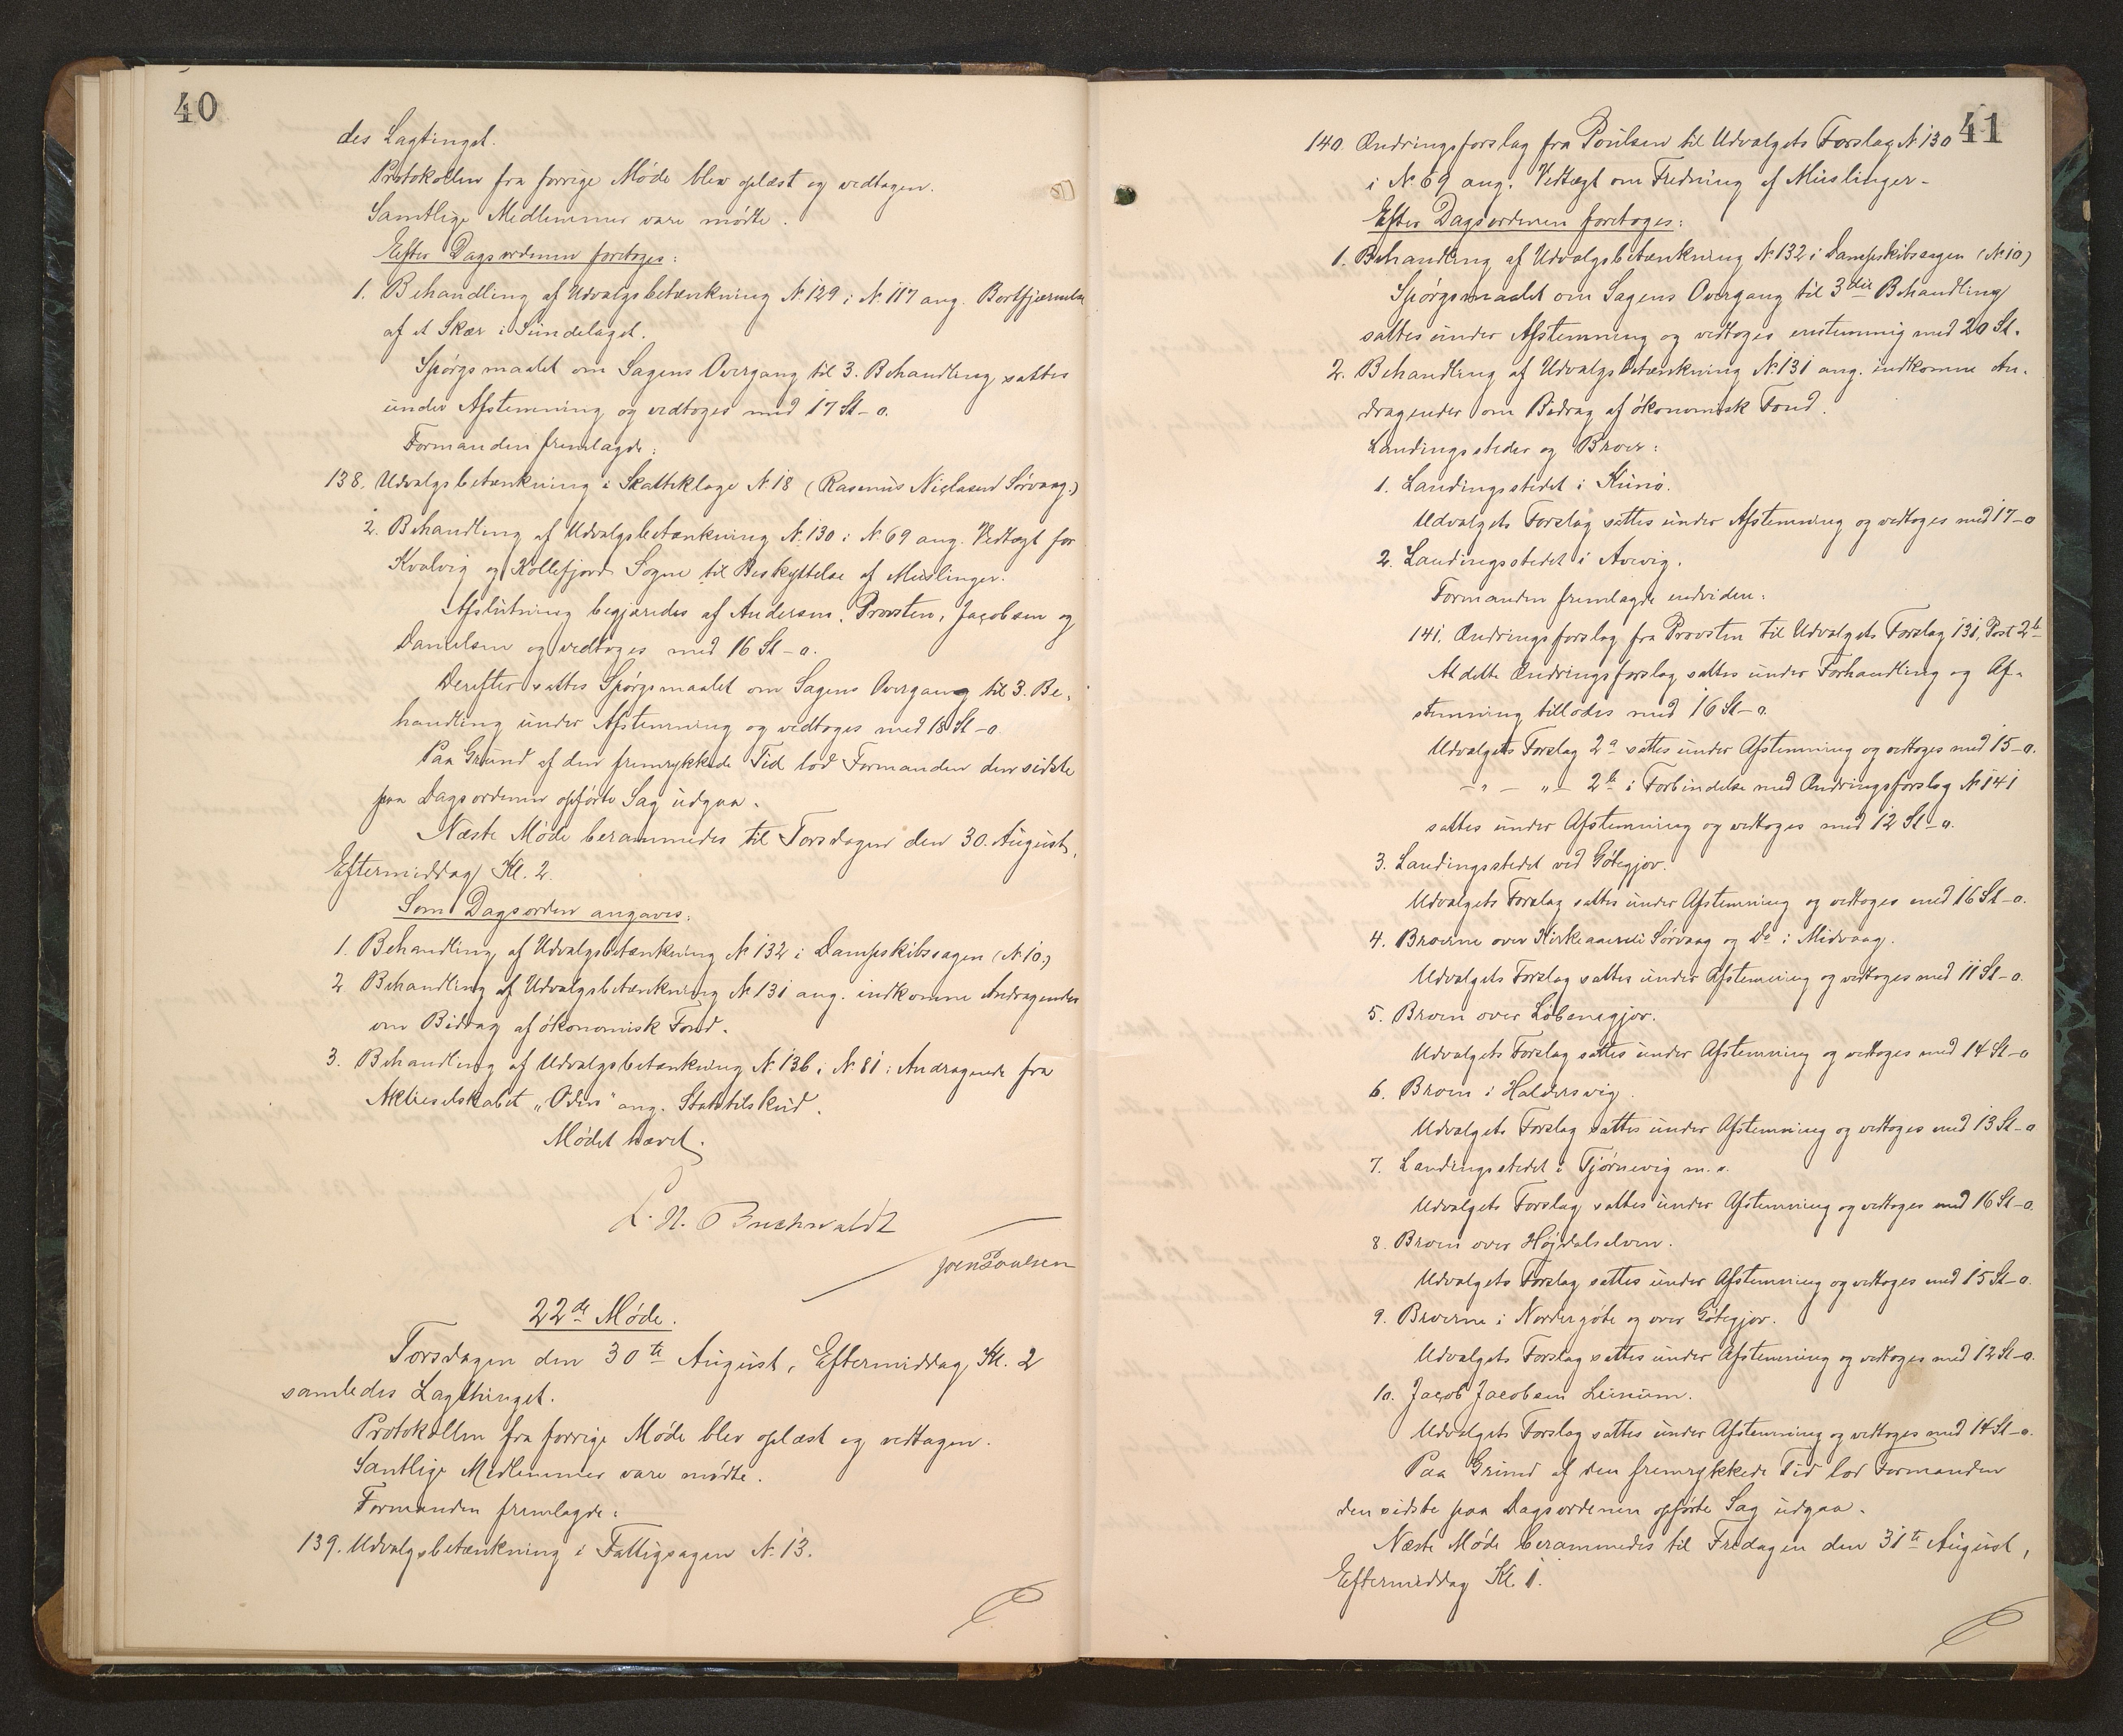 40
des Lagtinget.
Protokollen fra forrige Møde blev oplæst og vedtagen.
Samtlige Medlemmer vare mødte.
Efter Dagsordenen foretoges:
1. Behandling af Udvalgsbetænkning N. 129 i N. 117 ang. Bortfjærnelse
af et Skær i Sundelaget.
Spørgsmaalet om Sagens Overgang til 3. Behandling sattes
under Afstemning og vedtoges med 17 St - 0.
Formanden fremlagde:
138. Udvalgsbetænkning i Skatteklage N. 18 (Rasmus Niclasen Sørvaag.)
2. Behandling af Udvalgsbetænkning N. 130 i N. 69 ang. Vedtægt for
Kvalvig og Kollefjord Sogne til Beskyttelse af Muslinger.
Afslutning begjæredes af Andersen, Provsten, Jacobsen og
Danielsen og vedtoges med 16 St - 0.
Derefter sattes Spørgsmaalet om Sagens Overgang til 3. Be-
handling under Afstemning og vedtoges med 18 St - 0
Paa Grund af den fremrykkede Tid lod Formanden den sidste
paa Dagsordenen opførte Sag udgaa.
Næste Møde berammedes til Torsdagen den 30. August,
Eftermiddag Kl. 2.
Som Dagsorden angaves:
1. Behandling af Udvalgsbetænkning N. 132 i Dampskibssagen (N. 10)
2. Behandling af Udvalgsbetænkning N. 131 ang. indkomne Andragender
om Bidrag af økonomisk Fond.
3. Behandling af Udvalgsbetænkning N. 136 i N. 81: Andragende fra
Aktieselskabet „Odin" ang. Statstilskud.
Mødet hævet.
L. H. Buchwaldt
Joen Poulsen
22de Møde.
Torsdagen den 30te August, Eftermiddag Kl. 2
samledes Lagthinget.
Protokollen fra forrige Møde blev oplæst og vedtagen.
Samtlige Medlemmer vare mødte.
Formanden fremlagde:
139. Udvalgsbetænkning i Fattigsagen N. 13.
41
140. Ændringsforslag fra Poulsen til Udvalgets Forslag N. 130
i N. 69 ang. Vedtægt om Fredning af Muslinger -
Efter Dagsordenen foretoges:
1. Behandling af Udvalgsbetænkning N. 132 i Dampskibssagen (N. 10)
Spørgsmaalet om Sagens Overgang til 3die Behandling
sattes under Afstemning og vedtoges enstemmig med 20 St.
2. Behandling af Udvalgsbetænkning N. 131 ang. indkomne An-
dragender om Bidrag af økonomisk Fond.
Landingssteder og Broer:
1. Landingsstedet i Kunø.
Udvalgets Forslag sattes under Afstemning og vedtoges med 17 - 0
2. Landingsstedet i Avevig.
Formanden fremlagde endviden:
141. Ændringsforslag fra Provsten til Udvalgets Forslag 131, Post 2b
At dette Ændringsforslag sattes under Forhandling og Af-
stemning tillodes med 16 St - 0.
Udvalgets Forslag 2a sattes under Afstemning og vedtoges med 15 - 0.
- „ - „ - 2b i Forbindelse med Ændringsforslag N. 141
sattes under Afstemning og vedtoges med 12 St - 0.
3. Landingsstedet ved Gøtegjov.
Udvalgets Forslag sattes under Afstemning og vedtoges med 16 St - 0.
4. Broerne over Kirkeaaerne i Sørvaag og Do i Midvaag.
Udvalgets Forslag sattes under Afstemning og vedtoges med 11 St - 0.
5. Broen over Løbenagjov.
Udvalgets Forslag sattes under Afstemning og vedtoges med 14 St - 0
6. Broen i Haldersvig.
Udvalgets Forslag sattes under Afstemning og vedtoges med 13 St - 0
7. Landingsstedet i Tjørnevig m. v.
Udvalgets Forslag sattes under Afstemning og vedtoges med 16 St - 0.
8. Broen over Højdalselven.
Udvalgets Forslag sattes under Afstemning og vedtoges med 15 St - 0.
9. Broerne i Nordergøte og over Gøtegjov.
Udvalgets Forslag sattes under Afstemning og vedtoges med 12 St - 0.
10. Jacob Jacobsen Leinum.
Udvalgets Forslag sattes under Afstemning og vedtoges med 14 St - 0.
Paa Grund af den fremrykkede Tid lod Formanden
den sidste paa Dagsordenen opførte Sag udgaa.
Næste Møde berammedes til Fredagen den 31te August,
Eftermiddag Kl. 1.